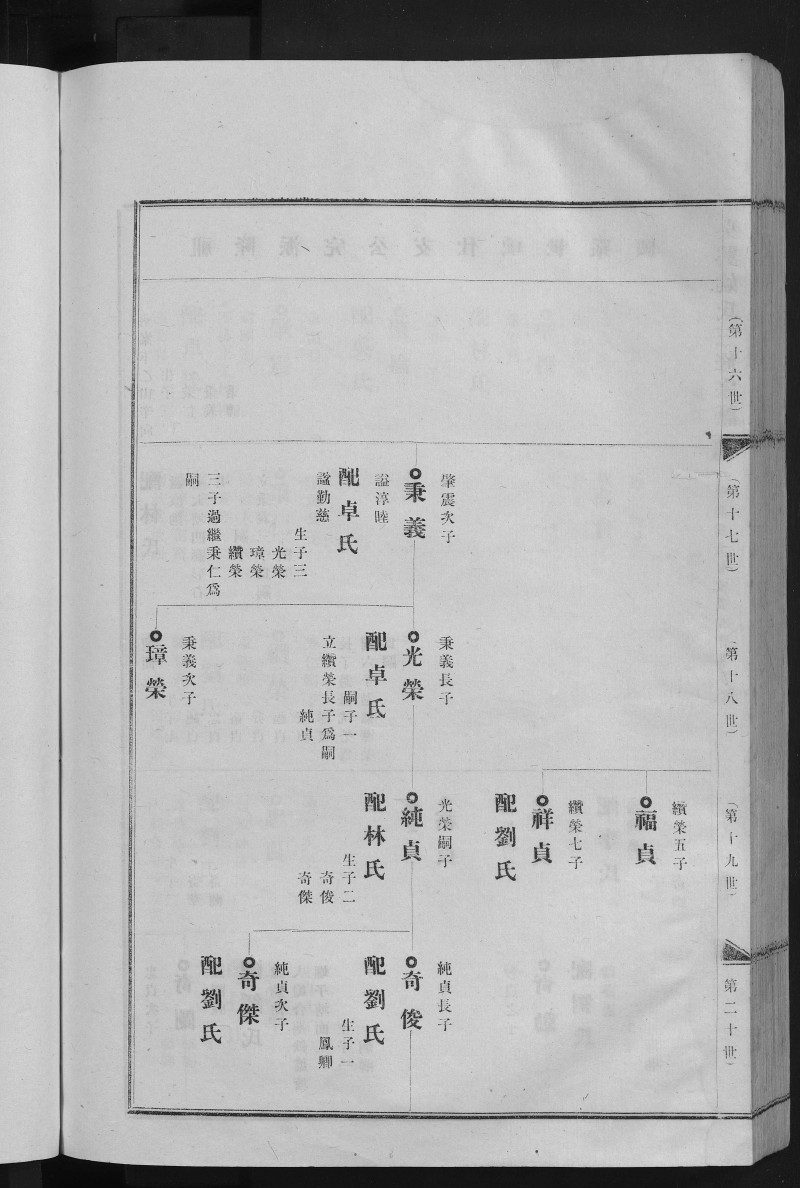 （第十六世）
（第十七世）
肇震次子
秉義
諡淳睦
配卓氏
諡勤慈
生子三
光榮
璋榮
纘榮
三子過繼秉仁爲
嗣
（第十八世）
秉義長子
光榮
配卓氏
嗣子一
立纘榮長子爲嗣
純貞
秉義次子
璋榮
（第十九世）
纘榮五子
福貞
纘榮七子
祥貞
配劉氏
光榮嗣子
純貞
配林氏
生子二
奇俊
奇傑
第二十世）
純貞長子
奇俊
配劉氏
生子一
鳳卿
純貞次子
奇傑
配劉氏